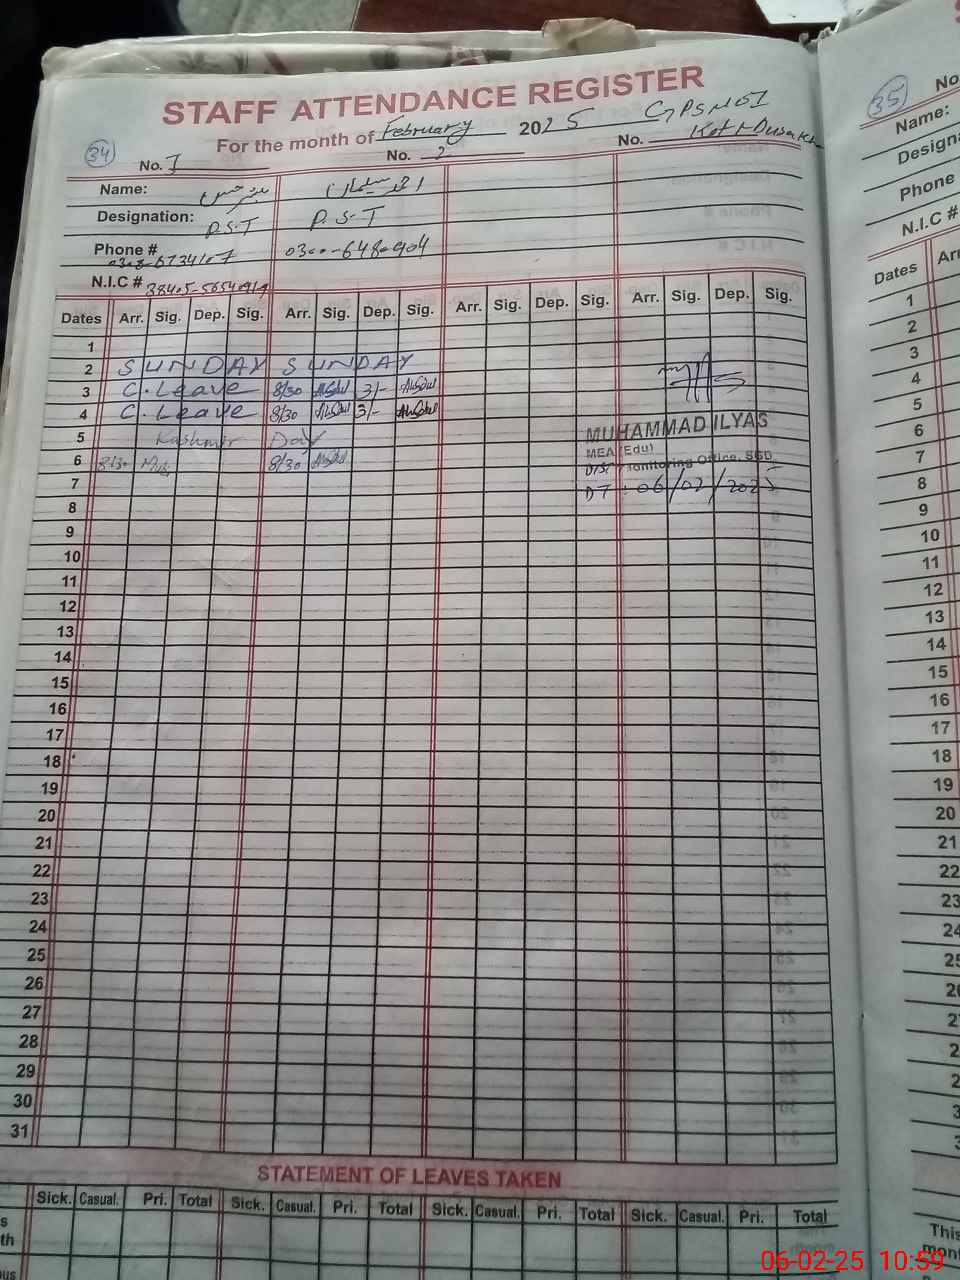 STAFF ATTENDANCE REGISTER
For the month of February 2025 GPS No I
34 No. 1 No. 2 No. Kot
Name:
Designation: P.S.T P.S.T
Phone #
N.I.C #
Dates Arr. Sig. Dep. Sig. Arr. Sig. Dep. Sig. Arr. Sig. Dep. Sig. Arr. Sig. Dep. Sig.
1
2 SUNDAY SUNDAY
3 C. Leave 8/30 3/-
4 C. Leave 8/30 3/-
5 Kashmir Day
6 8/30 8/30
MUHAMMAD ILYAS
MEA (Edu)
Distt Monitoring Office, SGD
DT: 06/02/2025
7
8
9
10
11
12
13
14
15
16
17
18
19
20
21
22
23
24
25
26
27
28
29
30
31
STATEMENT OF LEAVES TAKEN
Sick. Casual. Pri. Total Sick. Casual. Pri. Total Sick. Casual. Pri. Total Sick. Casual. Pri. Total
35
No
Name:
Phone
N.I.C #
Dates
1
2
3
4
5
6
7
8
9
10
11
12
13
14
15
16
17
18
19
20
21
22
23
This
06-02-25 10:59